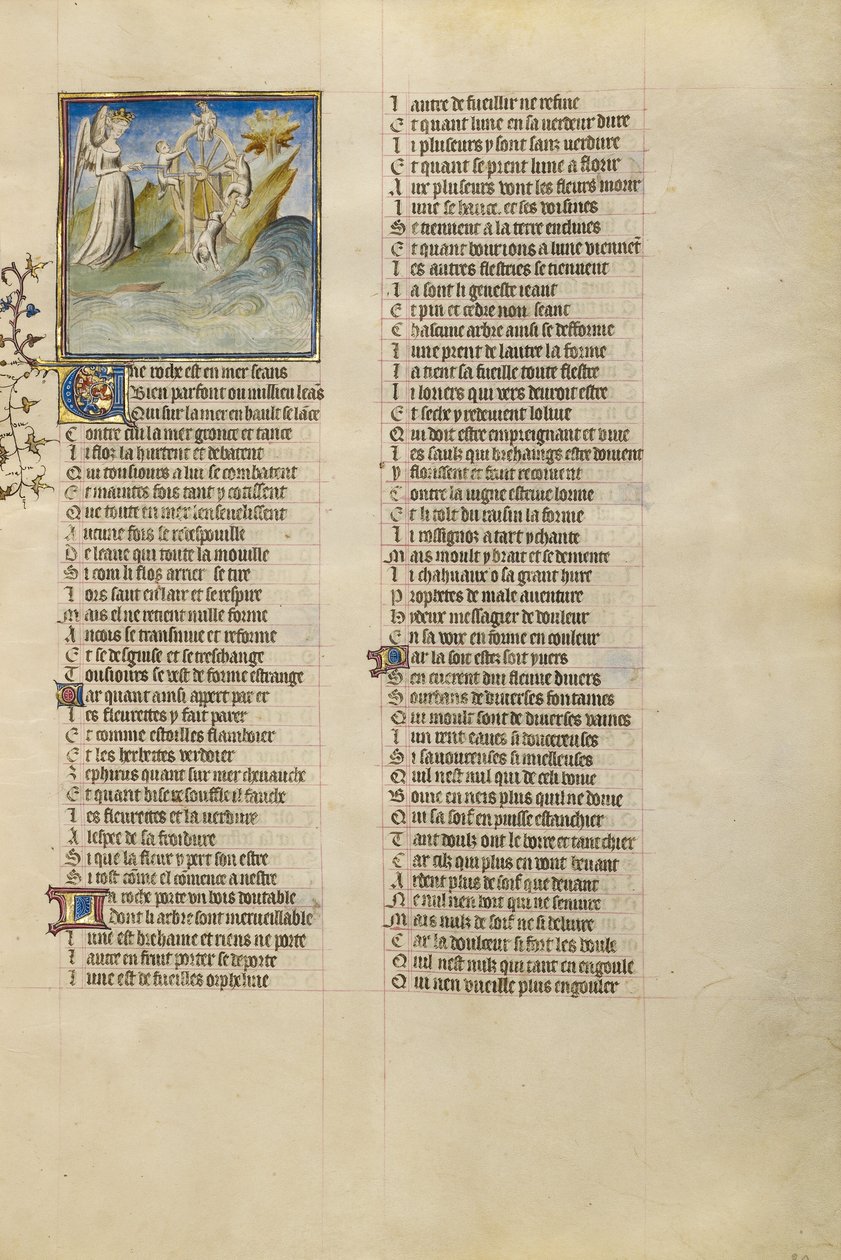 Une roche est en mer seans
Bien parfont ou millieu leans
Qui sur la mer en hault se lance
Contre cui la mer gronce et tance
Li floz la hurtent et debatent
Qui tousiours a lui se combatent
Et maintes fois tant y cotissent
Que toute en mer lensevelissent
Aucune fois se redespouille
De leaue qui toute la mouille
Si com li floz arrier se tire
Lors saut en lair et se respire
Mais el ne retient nulle forme
Ancois se transmue et reforme
Et se desguise et se treschange
Tousiours se vest de forme estrange
Car quant ainsi appert par er
Les fleurettes y fait parer
Et comme estoilles flamboier
Et les herbettes verdoier
Zephirus quant sur mer chevauche
Et quant bise re souffle il fauche
Les fleurettes et la verdure
A lespee de sa froidure
Si que la fleur y pert son estre
Si tost come el comence a nestre
La roche porte un bois doutable
dont li arbre sont merveillable
Lune est brehaine et riens ne porte
Lautre en fruit porter se deporte
Lune est de fueilles orpheline
Lautre de fueillir ne refine
Et quant lune en sa verdeur dure
Li pluseurs y sont sanz verdure
Et quant se prent lune a florir
Aux pluseurs vont les fleurs morir
Lune se hauce et ses voisines
Se tiennent a la terre enclines
Et quant bourions a lune viennet
Les autres flestries se tiennent
La sont li geneste ieant
Et pin et cedre non seant
Chascune arbre ainsi se defforme
Lune prent de lautre la forme
La tient sa fueille toute flestre
Li loriers qui vers devroit estre
Et seche y redevient lolive
Qui doit estre empreignant et vive
Les saulz qui brehaings estre doivent
y florissent et fruit recoivent
Contre la vigne estrive lorme
Et li tolt du raisin la forme
Li rossignoz a tart y chante
Mais moult y brait et se demente
Li chahuaux o sa grant hure
Prophetes de male aventure
Hydeux messagier de douleur
En sa voix en forme en couleur
Par la soit estez soit yvers
Sen cuerent dui fleuve divers
Sourdans de diverses fontaines
Qui moult sont de diverses vaines
Lun rent eaues si doucereuses
Si savoureuses si mielleuses
Quil nest nul qui de celi boive
Boive en neis plus quil ne doive
Qui sa soif en puisse estanchier
Tant doulz ont le boire et tant chier
Car cilz qui plus en vont bevant
Ardent plus de soif que devant
Ne nul nen boit qui ne senivre
Mais nulz de soif ne si delivre
Car la doulceur si fort les boule
Quil nest nulz qui tant en engoule
Qui nen vueille plus engouler